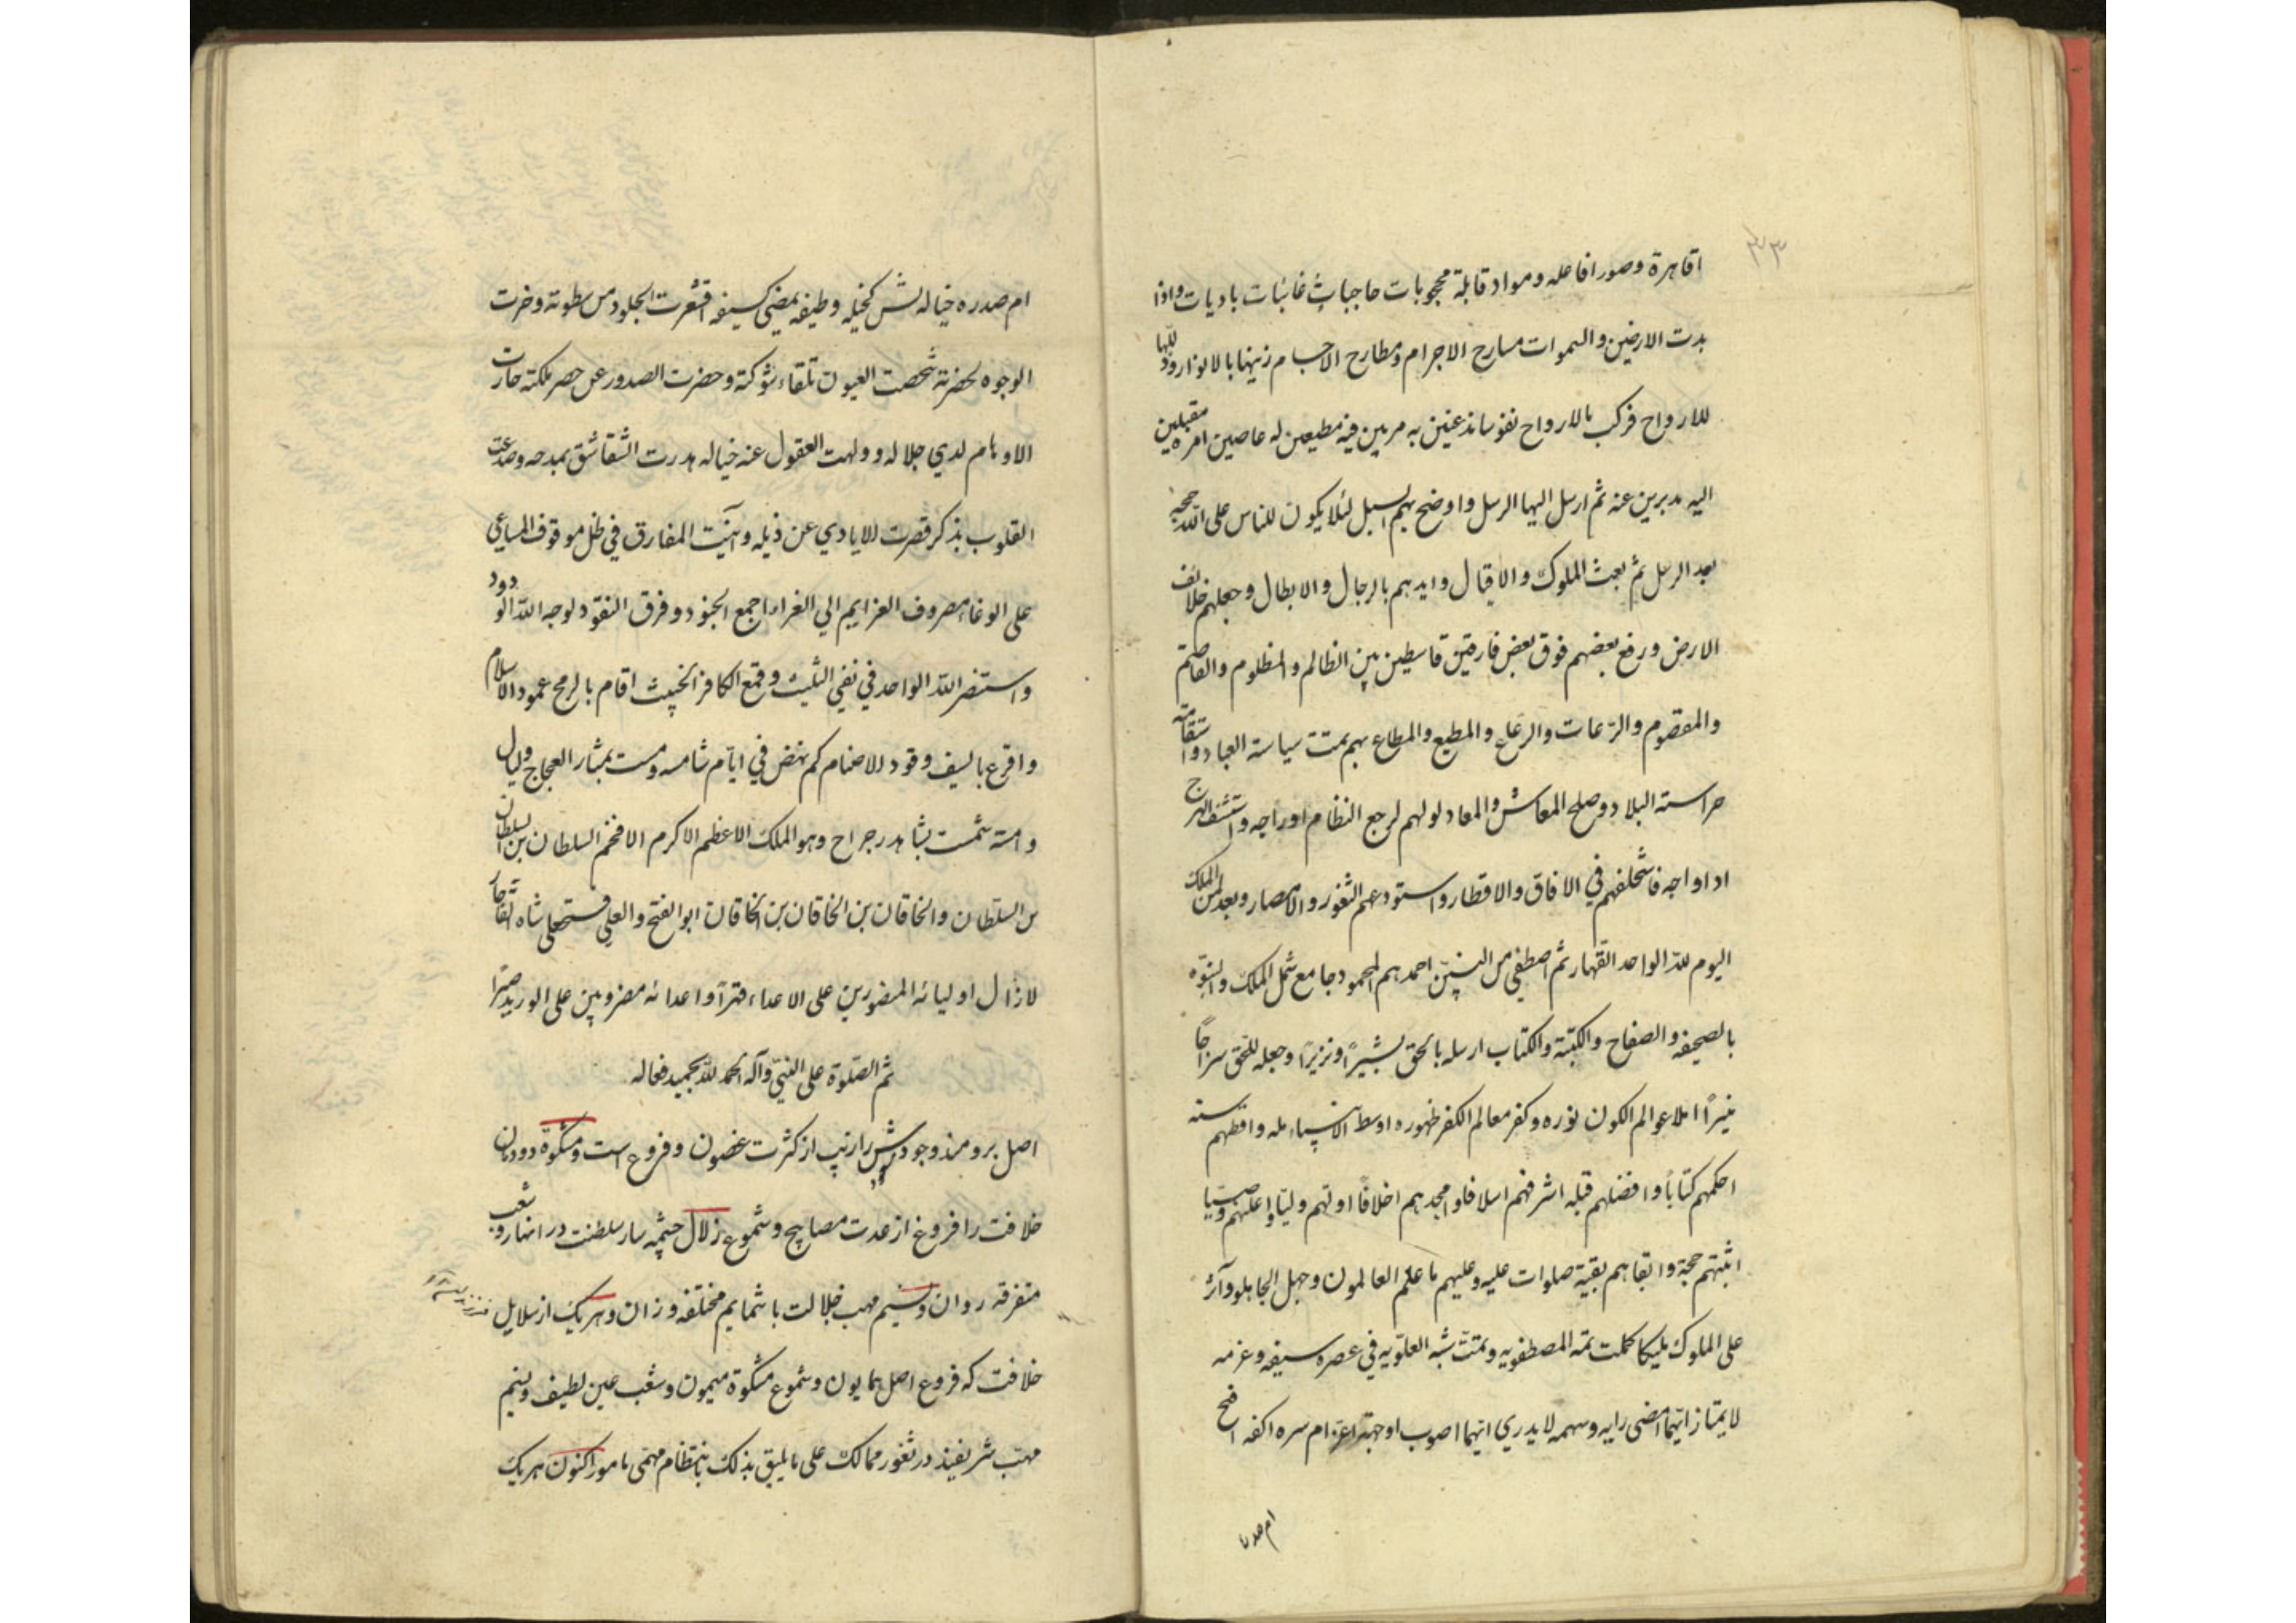 ۳۳
اقاهرة وصورا فاعله ومواد قابلة محجوبات حاجبات غائبات باديات واذا
بدت الارضين والسموات مسارح الاجرام ومطارح الاجسام زينها بالانوار وذللها
للارواح فركب بالارواح نفوسا مذعنين به مريبين فيه مطيعين له عاصين امره مقبلين
اليه مدبرين عنه ثم ارسل اليها الرسل واوضح بهم السبل لئلا يكون للناس على الله حجة
بعد الرسل ثم بعث الملوك والاقيال وايدهم بالرجال والابطال وجعلهم خلائف
الارض ورفع بعضهم فوق بعض فارقين قاسطين بين الظالم والمظلوم والقاصم
والمقصوم والرعات والرعاع والمطيع والمطاع بهم تمت سياسة العباد واستقامته
حراسته البلاد وصلح المعاش والمعاد لولهم لرجع النظام اوراجه واستشف الهرج
اداواجه فاستخلفهم في الافاق والاقطار واستودعهم الثغور والامصار وبعد لمن الملك
اليوم لله الواحد القهار ثم اصطفى من النبيّن احمدهم المحمود جامع شمل الملك والنبوّه
بالصحيفه والصفاح والكتبة والكتاب ارسله بالحق بشيرًا ونزيرًا وجعله للحق سراجًا
منيرًا املا عوالم الكون نوره وكفر معالم الكفر ظهوره اوسط الانبياء مله واقطهم سنه
احكمهم كتابًا وافضلهم قبله اشرفهم اسلافا وامجدهم اخلافًا اولهم وليّا واعلنهم وصيّا
اثبتهم حجة وابقاهم بقية صلوات عليه وعليهم ما علم العالمون وجهل الجاهلو وآثر
على الملوك مليكا كملت تمه المصطفويه وتمتّ شبه العلويه في عصره سيفه وعزمه
لايمتاز ايّهما امضى رايه وسهمه لايدري ايّهما اصوب اوجهته اعزام سره اكفه افتح
ام صدره
ام صدره خياله تش كخيله وطيفه يمضي كسيفه اقشعرت الجلود من سطوته وخرت
الوجوه لحضرته شخصت العيون تلقاء شوكته وحضرت الصدور عن حصر ملكته حارت
الاوهام لدي جلاله وولهت العقول عنه خياله هدرت الشقاشق بمدحه وصدعت
القلوب بذكر قصرت للايادي عن ذيله وآنيت المفارق في ظل موقوف المساعي
على الوغا مصروف العزايم الي الغزا ما جمع الجنود وفرق النقود لوجه الله الودود
واستنصر الله الواحد في نفي التثليث وقمع الكافر الخبيث اقام بالرمح عمود الاسلام
واقرع بالسيف وقود الاصنام كم نهض في ايّام شامسه ومست بمثار العجاج وليال
وامته شمت بشاهد رجراح وهو الملك الاعظم الاكرم الافخم السلطان بن السلطان
بن السلطان والخاقان بن الخاقان بن الخاقان ابوالفتح والعلي فتحعلي شاه قاجار
لازال اوليائه المنصورين على الاعداء قترًا واعدائه مضروبين على الوريد صبرًا
ثم الصّلوة على النبيّ وآله الحمد للّه بحميد فعاله
اصل برومند وجودش را زيب از كثرت غصون وفروع است ومشكوة دودمان
خلافت را فروغ از عدت مصابيح وشموع زلال چشمه سار سلطنت در انهار وشعب
متفرقه روان ونسيم مهب جلالت با شمايم مختلفه وزان وهر يك از سلايل
خلافت كه فروع اصل همايون وشموع مشكوة ميمون وشعب عين لطيف ونسيم
مهبّ شريفند در ثغور ممالك على ما يليق بذلك بانتظام مهمّى مامور اكنون هر يك